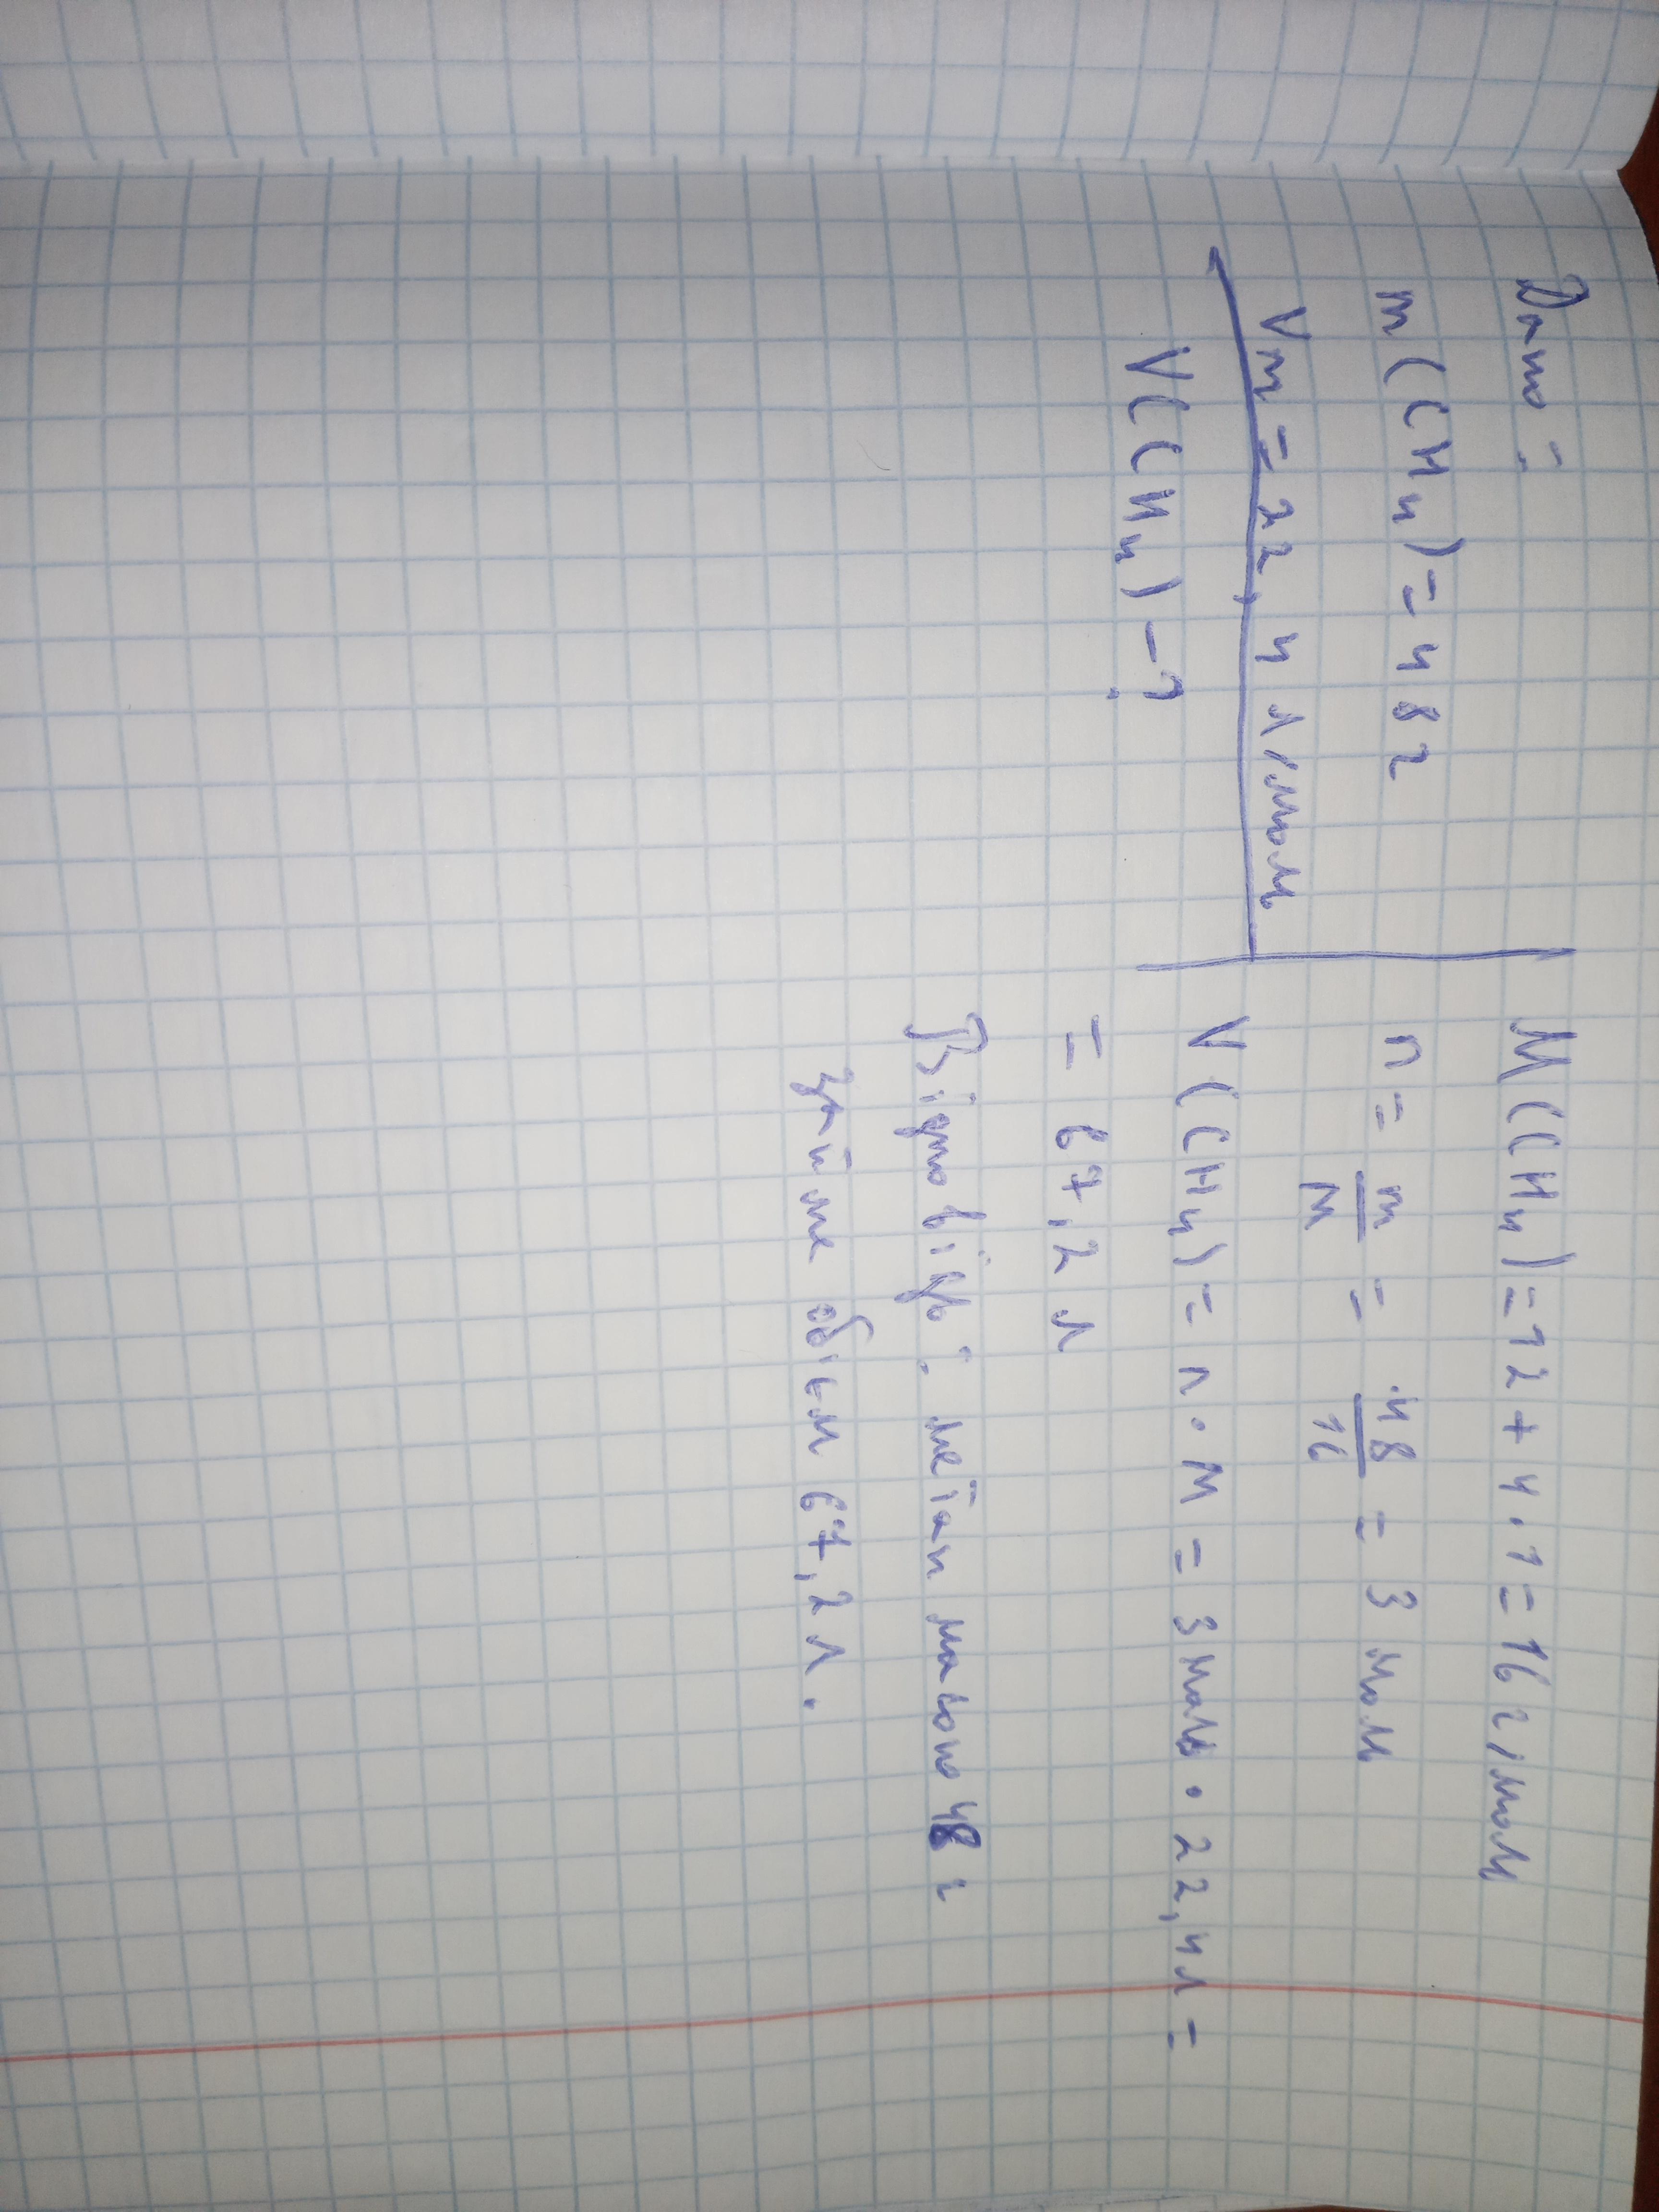 Дано:
m(CH₄) = 48 г
Vm = 22,4 л/моль
V(CH₄) - ?
M(CH₄) = 12 + 4 · 1 = 16 г/моль
n = m/M = 48/16 = 3 моль
V(CH₄) = n · M = 3 моль · 22,4 л =
= 67,2 л
Відповідь: метан масою 48 г
займе обʼєм 67,2 л.